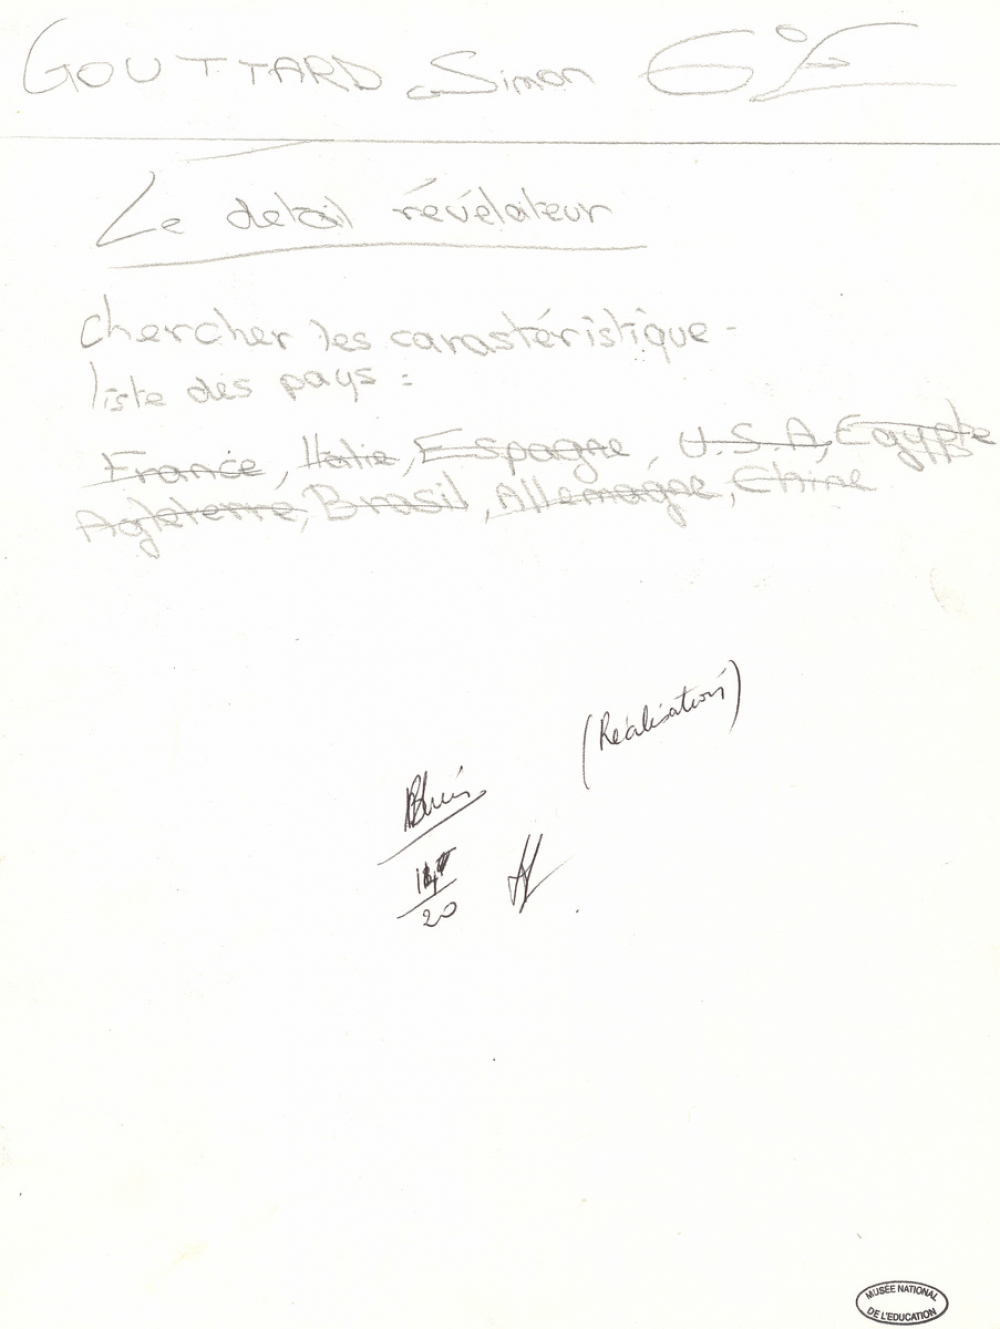 GOUTTARD Simon 6°E
Le detail révélateur
chercher les carastéristique-
liste des pays :
France, Italie, Espagne, U.S.A, Egypte
Agleterre, Brasil, Allemagne, Chine
(Réalisation)
20
MUSÉE NATIONAL
DE L'EDUCATION